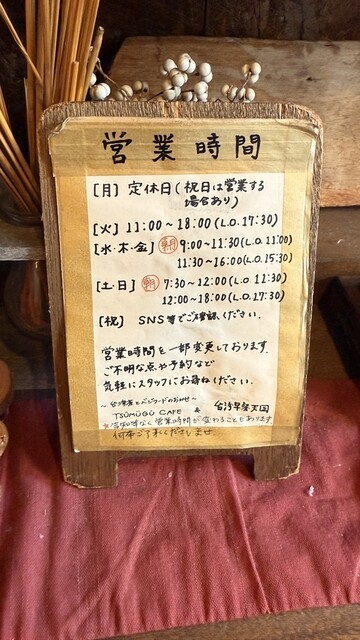 営業時間
[月] 定休日(祝日は営業する
場合あり)
[火] 11:00～18:00(L.O.17:30)
[水・木・金] 朝 9:00～11:30(L.O.11:00)
11:30～16:00(L.O.15:30)
[土・日] 朝 7:30～12:00(L.O.11:30)
12:00～18:00(L.O.17:30)
[祝] SNS等でご確認ください.
営業時間を一部変更しております.
ご不明な点や予約など
気軽にスタッフにお尋ねください.
TSUMUGU CAFE & 台湾早餐天国
※告知等なく営業時間が変わることもあります
何卒ご了承くださいませ